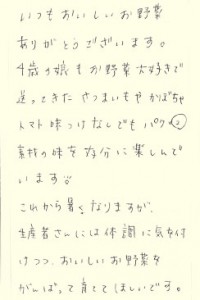 いつもおいしいお野菜
ありがとうございます。
4歳の娘もお野菜大好きで
送ってきたさつまいもやかぼちゃ
トマト味つけなしでもパクパク
素材の味を存分に楽しんで
います
これから暑くなりますが、
生産者さんには体調に気を付
けつつ、おいしいお野菜を
がんばって育ててほしいです。